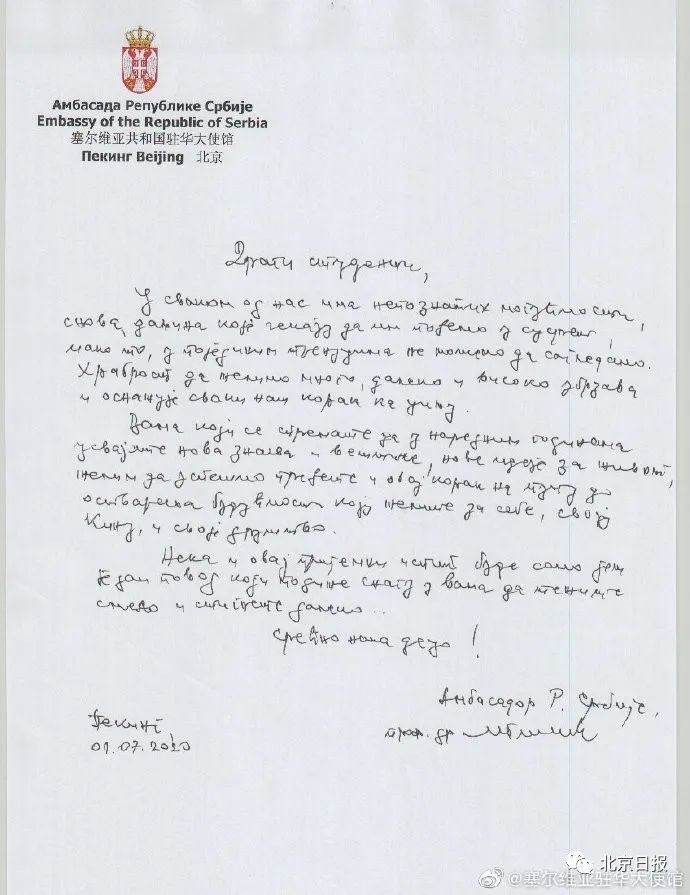 Амбасада Републике Србије
Embassy of the Republic of Serbia
塞尔维亚共和国驻华大使馆
Пекинг Beijing 北京
Драги студенти,
У сваком од нас има непознатих могућности,
снова, даљина које чекају да им пођемо у сусрет,
иако то, у појединим тренуцима не можемо да сагледамо.
Храброст да желимо много, далеко и високо убрзава
и оснажује сваки наш корак ка циљу.
Вама који се спремате да у наредним годинама
усвајате нова знања и вештине, нове идеје за живот,
желим да успешно пређете и овај корак на путу до
остварења будућности коју желите за себе, своју
Кину, и своје друштво.
Нека и овај пријемни испит буде само још
један повод који подиже снагу у вама да тежите
смело и стигнете далеко..
Срећно наша децо!
Амбасадор Р. Србије,
проф. др
Пекинг,
01.07.2020
北京日报
@塞尔维亚驻华大使馆